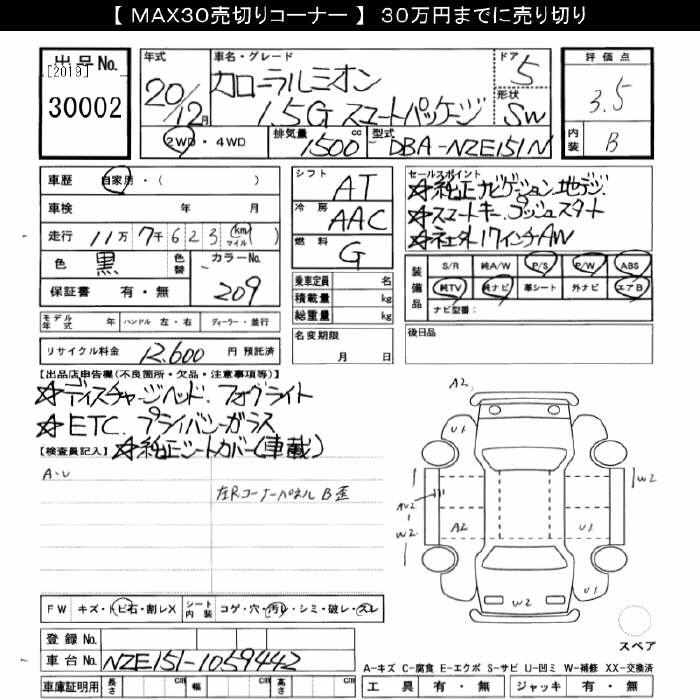 【 MAX30売切りコーナー 】 30万円までに売り切り
出品No.
[2019]
30002
年式
20/12月
車名・グレード
カローラルミオン
1.5G スマートパッケージ
ドア 5
形状 SW
2WD・4WD
排気量 1500 cc
型式 DBA-NZE151N
評価点
3.5
内装 B
車歴 自家用・( )
車検 年 月
走行 11万7千623(km マイル)
色 黒 色替
カラーNo. 209
保証書 有・無
シフト AT
冷房 AAC
燃料 G
乗車定員 名
積載量 kg
総重量 kg
セールスポイント
☆純正ナビゲーション地デジ
☆スマートキー.プッシュスタート
☆社外17インチAW
装備品
S/R 純A/W P/S P/W ABS
純TV 純ナビ 革シート 外ナビ エアB
ナビ型番:
モデル年式 年 ハンドル 左・右 ディーラー・並行
リサイクル料金 12.600 円 預託済
名変期限
月 日
後日品
【出品店申告欄(不良箇所・欠品・注意事項等)】
☆ディスチャージヘッド.フォグライト
☆ETC.プライバシーガラス
☆純正シートカバー(車載)
【検査員記入】
A・U
左Rコーナーパネル B歪
A2
U1
W2
A2
U1
W2
U1
W2
FW キズ・トビ石・割レX
シート内装 コゲ・穴・汚レ・シミ・破レ・スレ
登録No.
車台No. NZE151-1059442
車庫証明用 長さ cm 幅 cm 高さ cm
スペア
A-キズ C-腐食 E-エクボ S-サビ U-凹ミ W-補修 XX-交換済
工具 有・無 ジャッキ 有・無